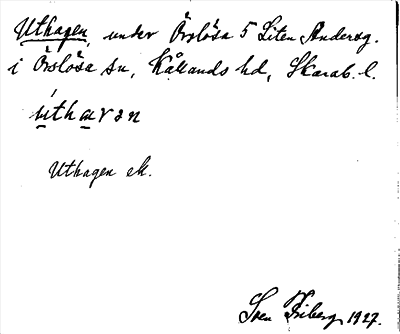 Uthagen, under Örslösa 5 Liten Andersg.
i Örslösa sn, Kållands hd, Skarab. l.
úthavan
Uthagen ek.
Sven Friberg 1927.